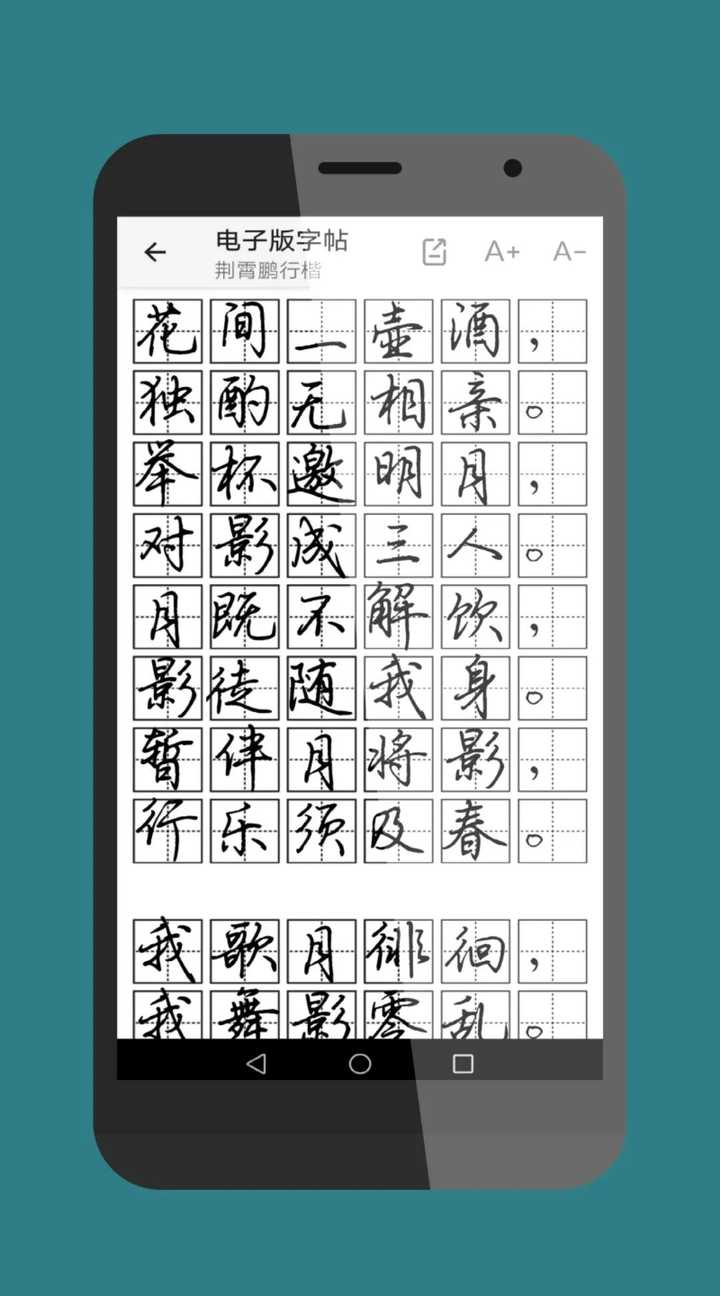 电子版字帖
荆霄鹏行楷
A+ A-
花间一壶酒，
独酌无相亲。
举杯邀明月，
对影成三人。
月既不解饮，
影徒随我身。
暂伴月将影，
行乐须及春。
我歌月徘徊，
我舞影零乱。